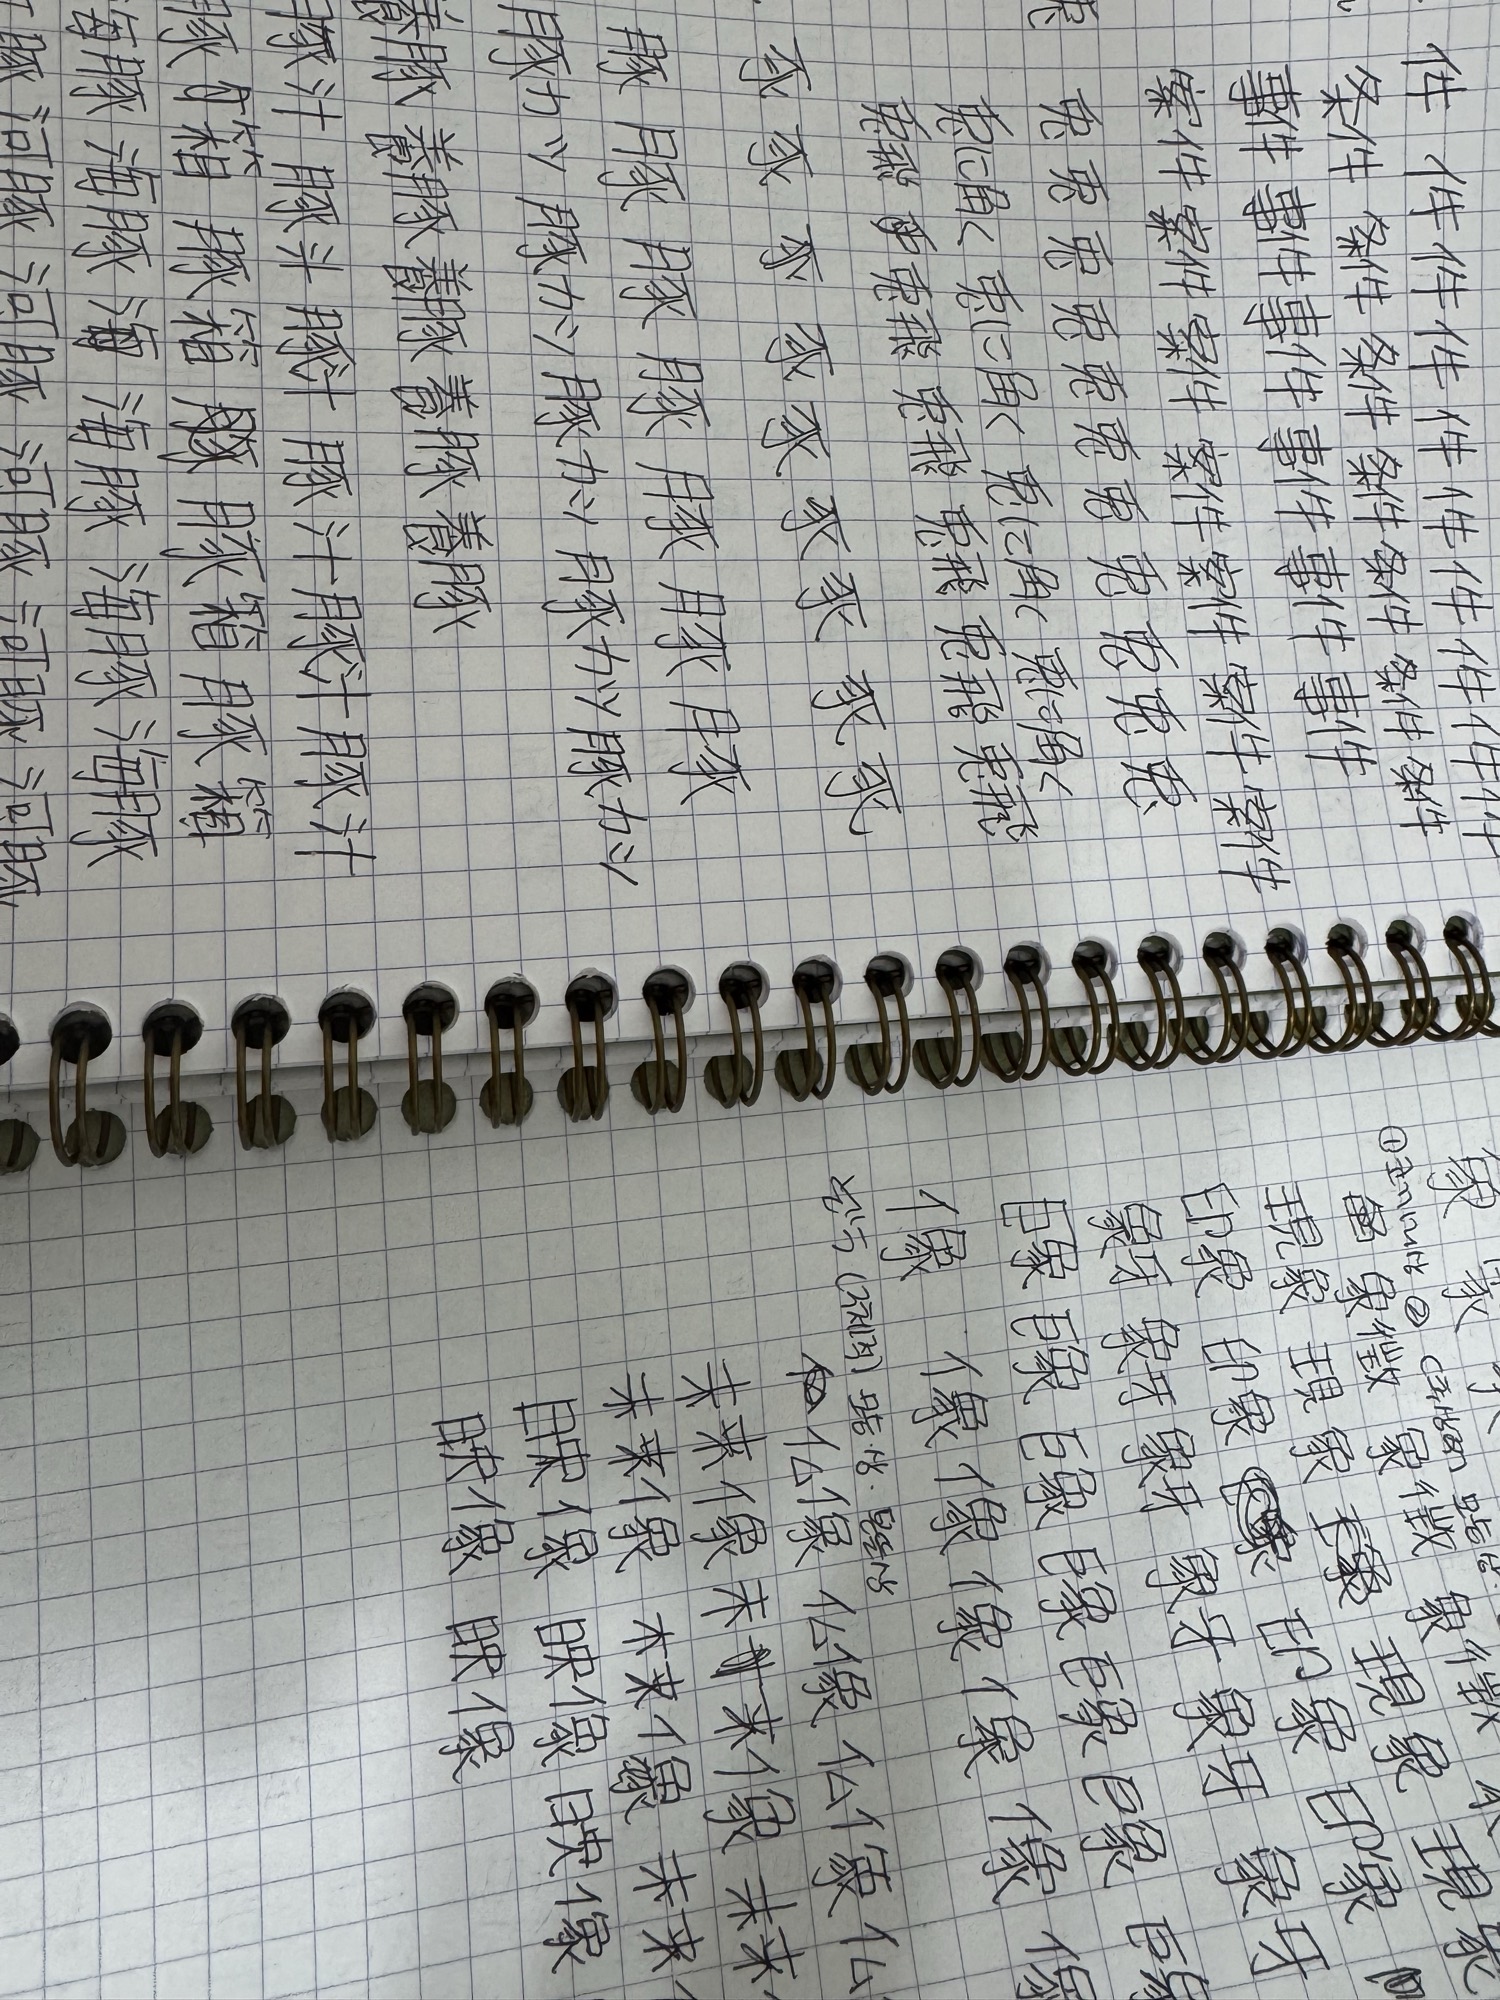 件 件 件 件 件 件 件 件 件 件
条件 条件 条件 条件 条件 条件 条件
事件 事件 事件 事件 事件 事件
案件 案件 案件 案件 案件 案件 案件
兎 兎 兎 兎 兎 兎 兎 兎 兎 兎 兎
兎に角く 兎に角く 兎に角く 兎に角く
兎飛 兎飛 兎飛 兎飛 兎飛 兎飛
豕 豕 豕 豕 豕 豕 豕 豕 豕
豚 豚 豚 豚 豚 豚 豚
豚カツ 豚カツ 豚カツ 豚カツ 豚カツ
養豚 養豚 養豚 養豚 養豚
豚汁 豚汁 豚汁 豚汁 豚汁 豚汁
豚箱 豚箱 豚 豚箱 豚箱
海豚 海豚 海 海豚 海豚 海豚
河豚 河豚 河豚 河豚 河豚
① 코끼리 상 ②
象徴 象徴 象徴
現象 現象 現象 現象
印象 印象 印象 印象
象牙 象牙 象牙 象牙 象牙 象牙
巨象 巨象 巨象 巨象 巨象 巨象 巨象
像 像 像 像 像 像 像
(구체적) 모습 상. 본뜰 상
仏像 仏像 仏像 仏
未来像 未来像 未来
未来像 未来像 未来
映像 映像 映像
映像 映像